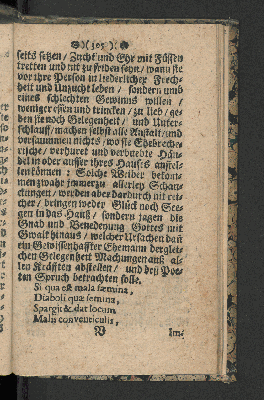 )( 305 )(
setts setzen / Zucht und Ehr mit Füssen
tretten und nit zu frieden seyn / wann sie
vor ihre Person in liederlicher Frech-
heit und Unzucht leben / sondern umb
eines schlechten Gewinns willen /
weniger essen und trincken / zu lieb / ge-
ben sie noch Gelegenheit / und Unter-
schlauff / machen selbst alle Anstalt / und
versaumnen nichts / wo sie Ehebreche-
rische / verhurte und verbuebte Hän-
del in oder ausser ihres Hausses anstel-
len können: Solche Weiber bekom-
men zwahr immerzu allerley Schan-
ckungen / werden aber dardurch nit rei-
cher / bringen weder Glück noch See-
gen in das Hauß / sondern jagen die
Gnad und Benedeyung Gottes mit
Gwalt hinaus / welcher Ursachen dañ
ein Gewissenhaffter Ehemann dergleiè
chen Gelegenheit Machungen auß al-
len Kräfften abstellen / und den Poe-
ten Spruch betrachten solle.
Si qua est mala fœmina,
Diaboli quæ semina,
Spargit & dat locum
Malis conventiculis,
V
Im-